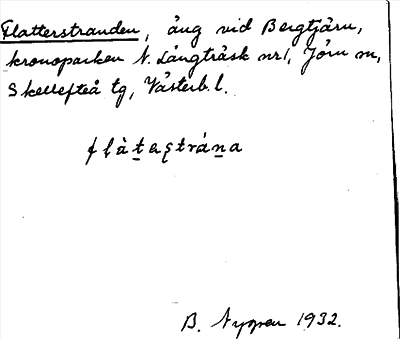 Flatterstranden, äng vid Bergtjärn,
kronoparken N. Långträsk nr 1, Jörn sn,
Skellefteå tg, Västerb. l.
B. Nyman 1932.